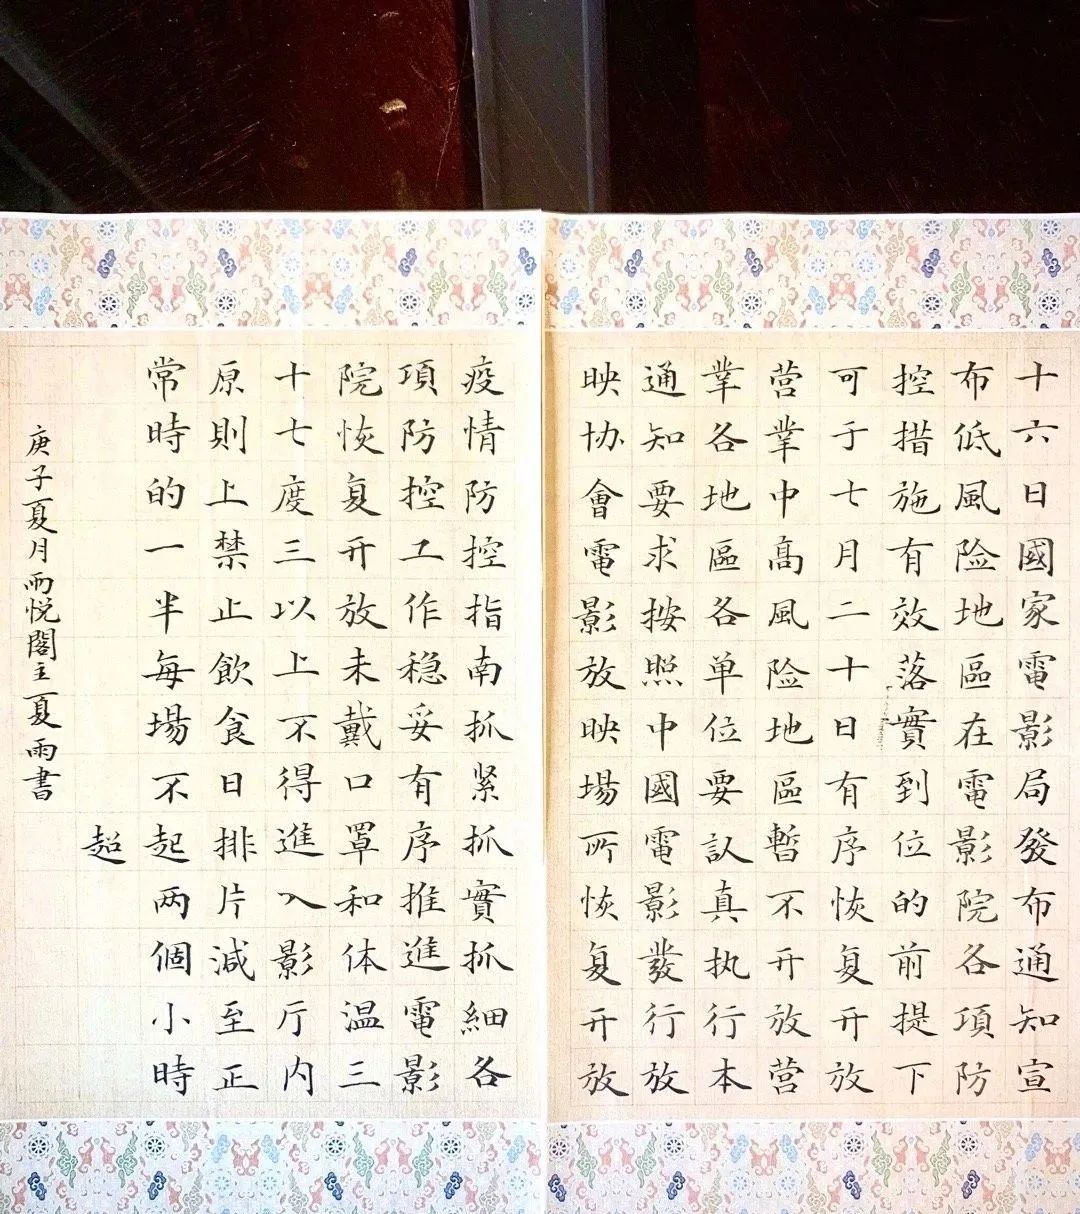 十六日國家電影局發布通知宣
布低風险地區在電影院各項防
控措施有效落實到位的前提下
可于七月二十日有序恢复开放
营業中高風险地區暫不开放营
業各地區各单位要認真执行本
通知要求按照中國電影發行放
映协會電影放映場所恢复开放
疫情防控指南抓紧抓實抓細各
項防控工作稳妥有序推進電影
院恢复开放未戴口罩和体温三
十七度三以上不得進入影厅内
原則上禁止飲食日排片減至正
常時的一半每場不起两個小時
超
庚子夏月雨悦閣主夏雨書